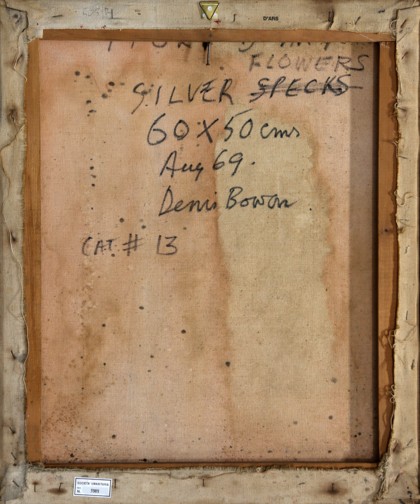 D'ARS
FLOWERS
SILVER SPECKS
60X50 cms
Aug 69.
Denis Bowen
CAT # 13